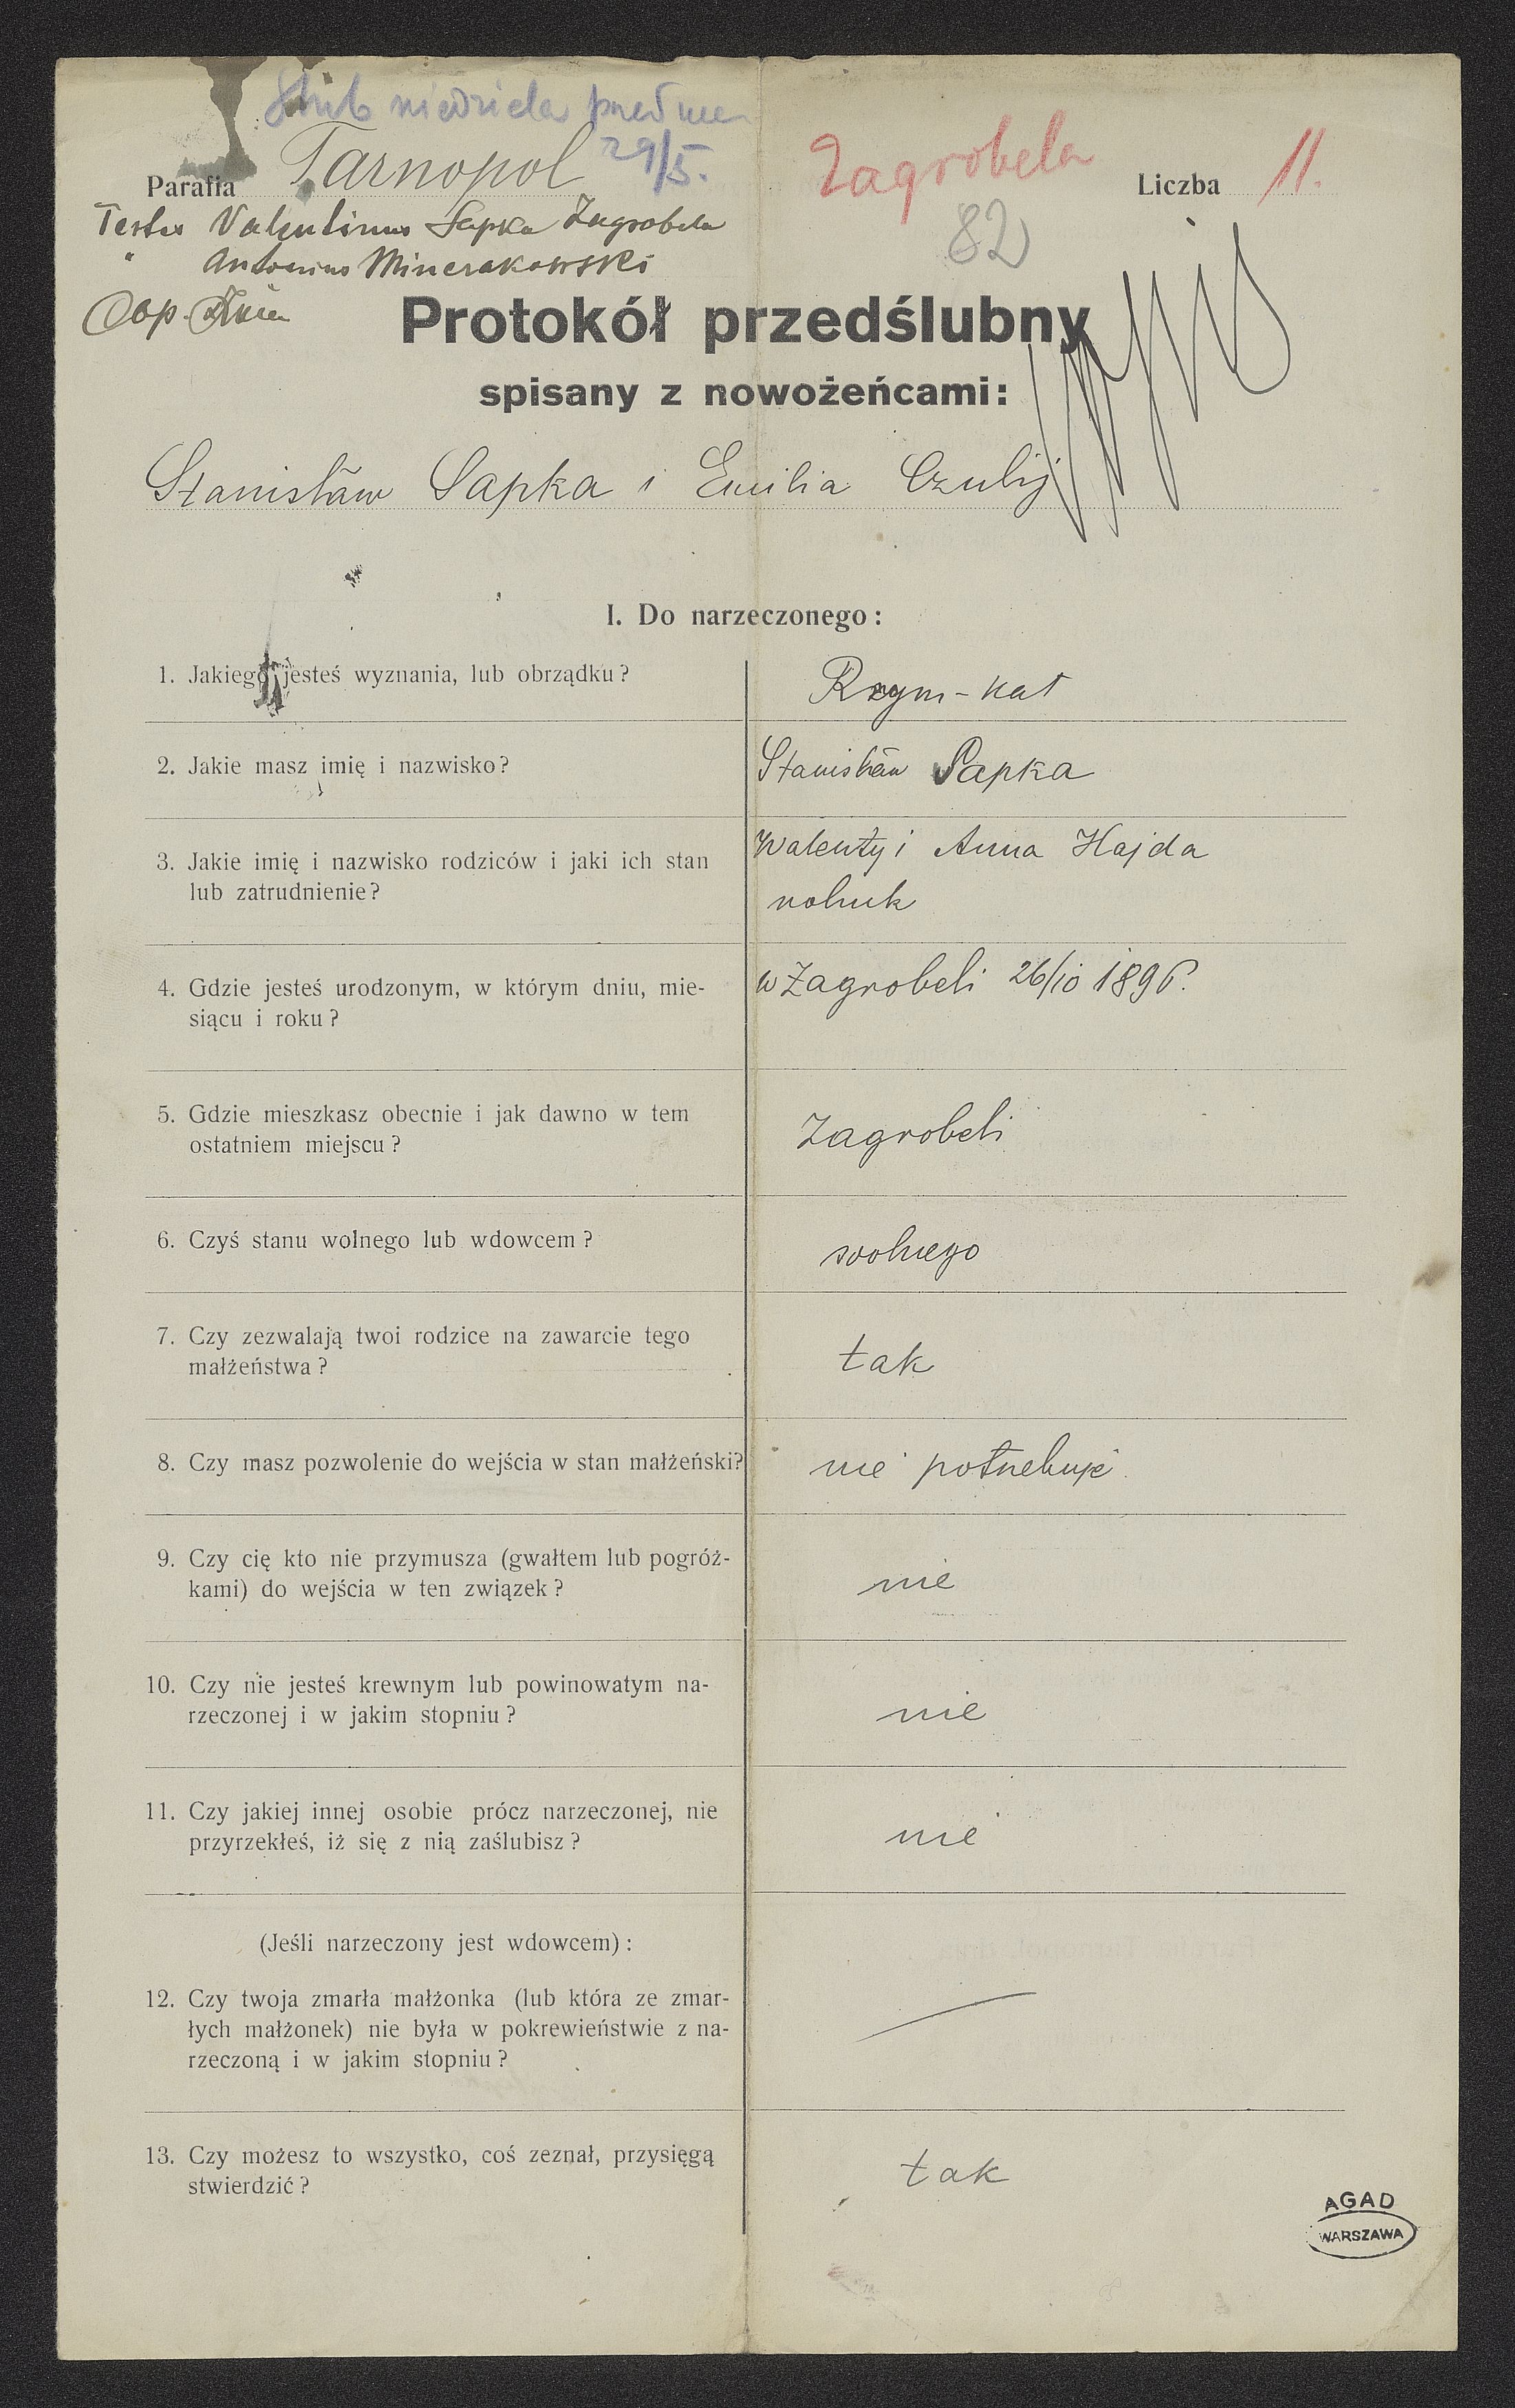 Ślub niedziela
29/5.
Parafia Tarnopol
Zagrobela
Liczba 11.
82
Testes Valentinus Sapka Zagrobela
" Antonius
Cop.
Protokół przedślubny
spisany z nowożeńcami:
Stanisław Sapka i Emilia Czubij
I. Do narzeczonego:
1. Jakiego jesteś wyznania, lub obrządku?
Rzym-kat
2. Jakie masz imię i nazwisko?
Stanisław Sapka
3. Jakie imię i nazwisko rodziców i jaki ich stan
lub zatrudnienie?
Walenty i Anna Hajda
rolnik
4. Gdzie jesteś urodzonym, w którym dniu, mie-
siącu i roku?
w Zagrobeli 26/10 1896.
5. Gdzie mieszkasz obecnie i jak dawno w tem
ostatniem miejscu?
Zagrobeli
6. Czyś stanu wolnego lub wdowcem?
wolnego
7. Czy zezwalają twoi rodzice na zawarcie tego
małżeństwa?
tak
8. Czy masz pozwolenie do wejścia w stan małżeński?
nie potrzebuje
9. Czy cię kto nie przymusza (gwałtem lub pogróż-
kami) do wejścia w ten związek?
nie
10. Czy nie jesteś krewnym lub powinowatym na-
rzeczonej i w jakim stopniu?
nie
11. Czy jakiej innej osobie prócz narzeczonej, nie
przyrzekłeś, iż się z nią zaślubisz?
nie
(Jeśli narzeczony jest wdowcem):
12. Czy twoja zmarła małżonka (lub która ze zmar-
łych małżonek) nie była w pokrewieństwie z na-
rzeczoną i w jakim stopniu?
13. Czy możesz to wszystko, coś zeznał, przysięgą
stwierdzić?
tak
AGAD
WARSZAWA